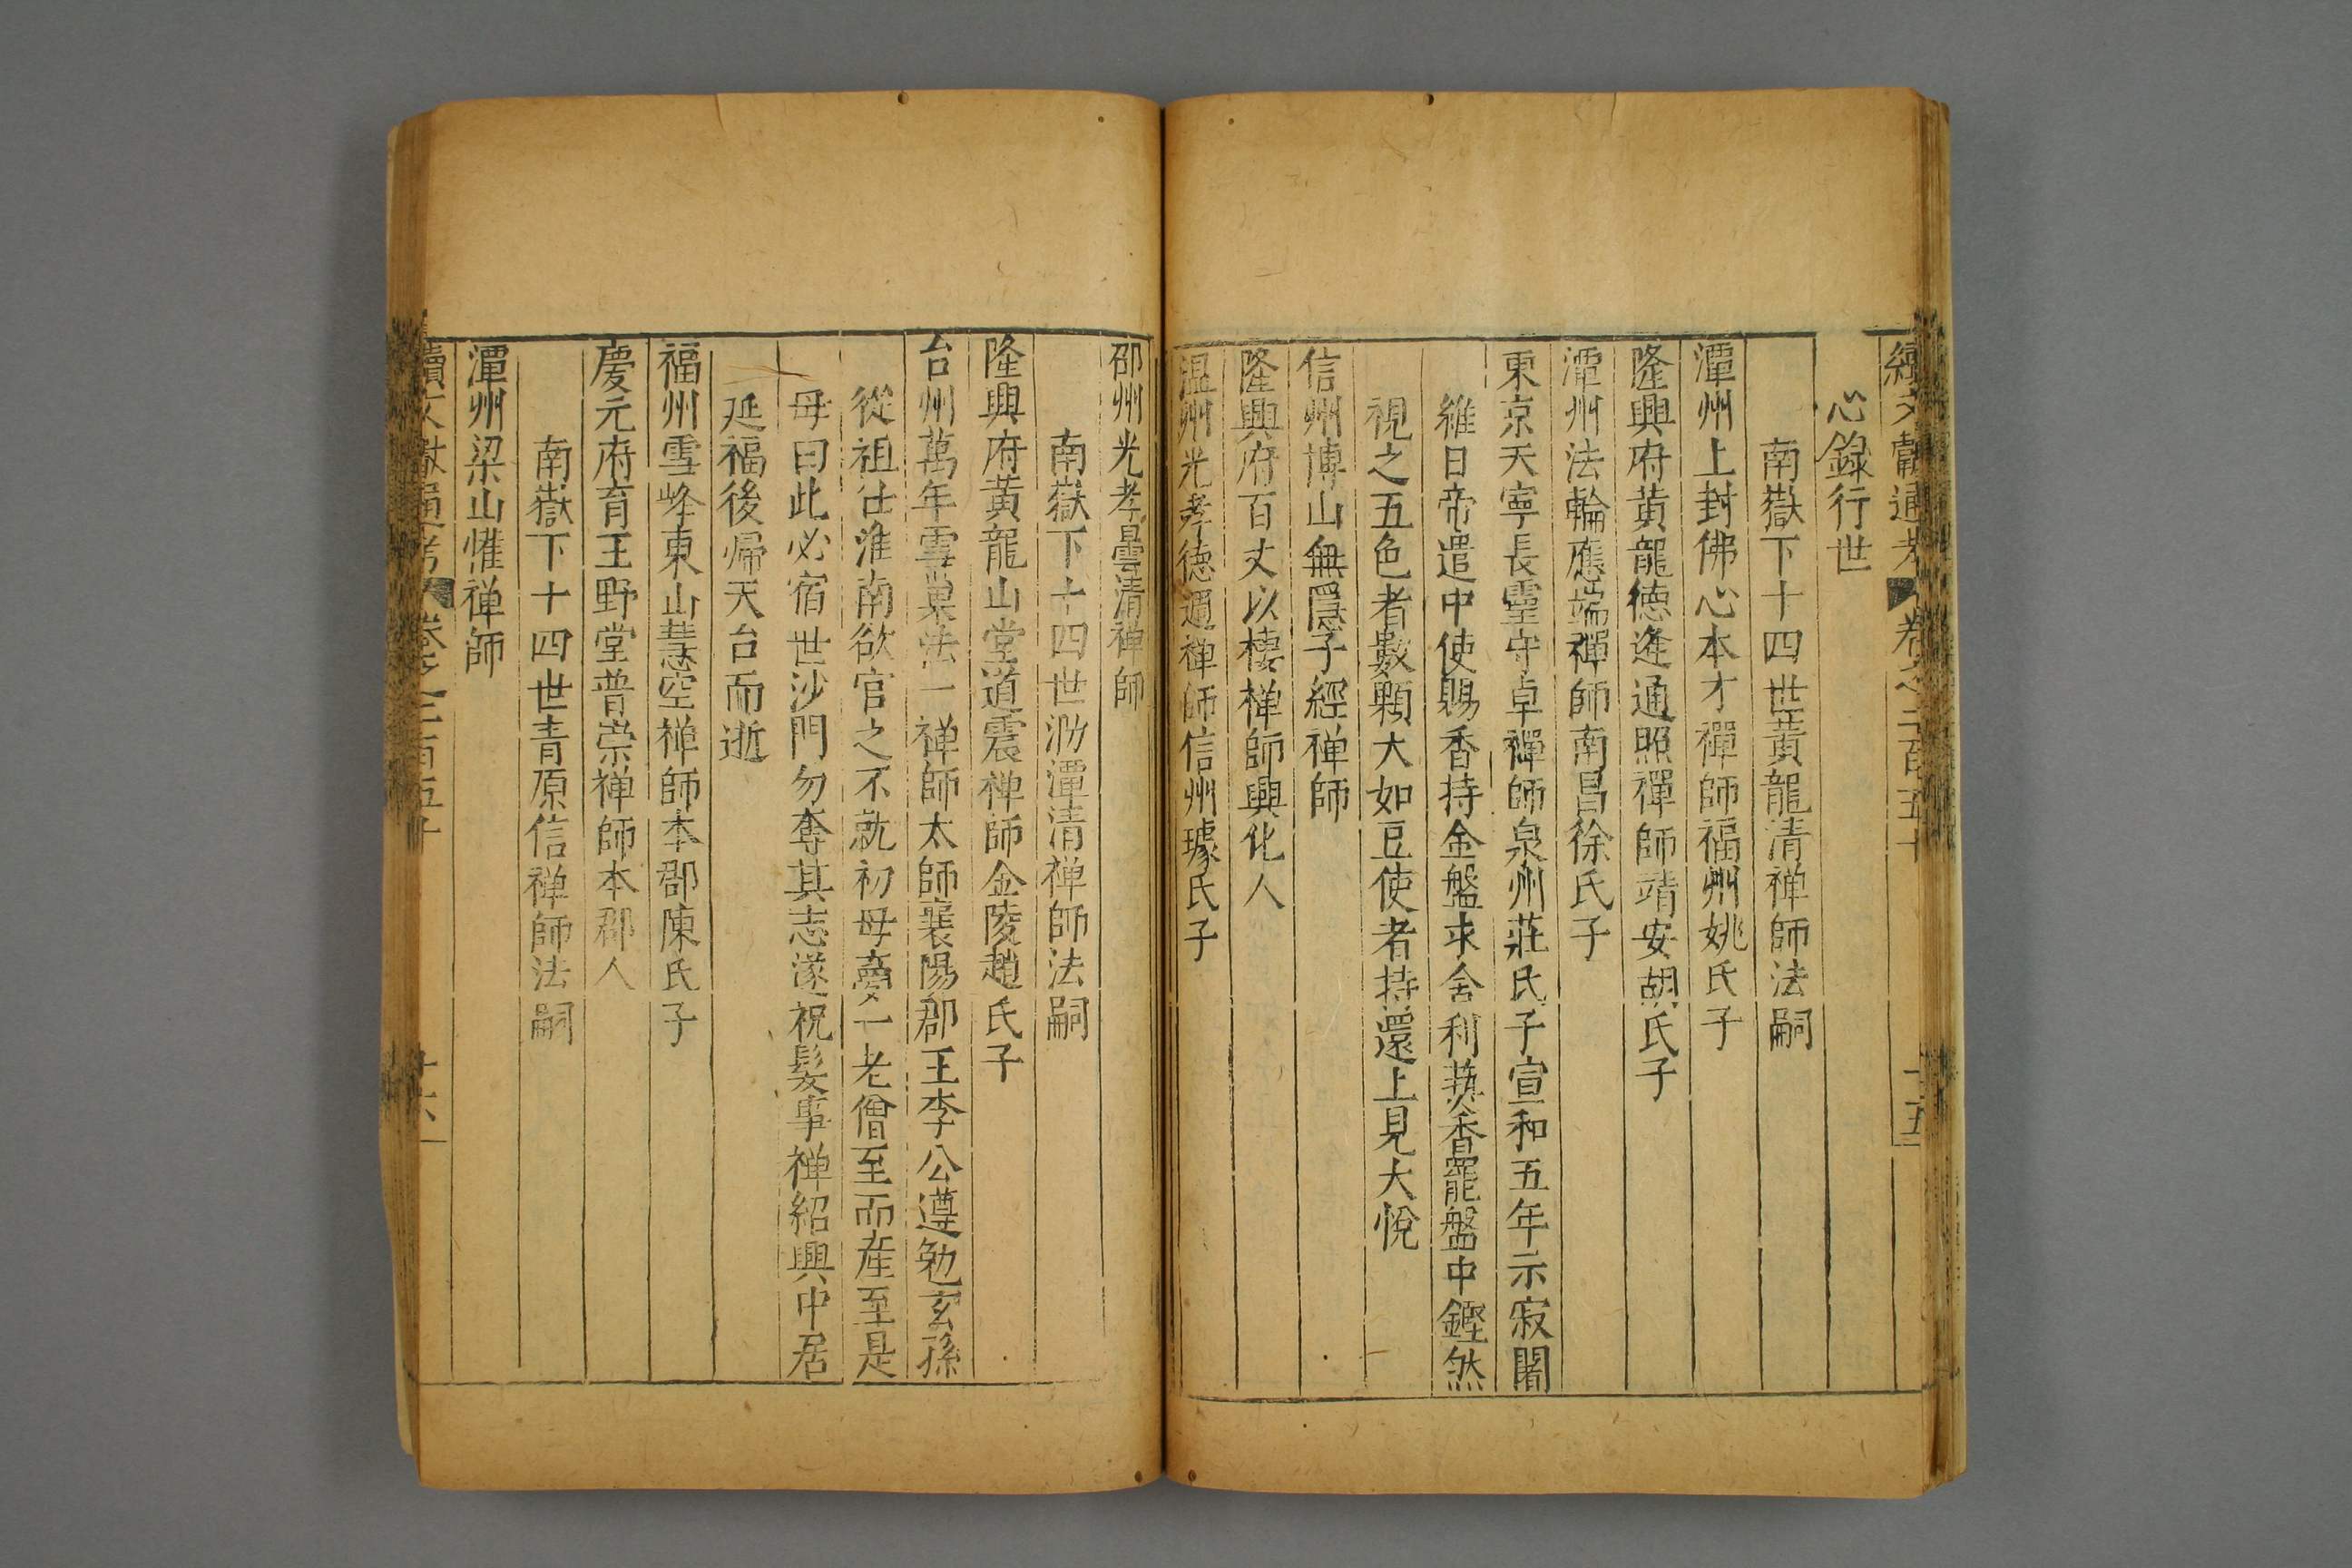 續文獻通考 卷之二百五十 十五
心錄行世
南嶽下十四世黃龍清禅師法嗣
潭州上封佛心本才禪師福州姚氏子
隆興府黃龍德逢通照禪師靖安胡氏子
潭州法輪應端禪師南昌徐氏子
東京天寧長靈守卓禪師泉州莊氏子宣和五年示寂闍
維日帝遣中使賜香持金盤求舍利爇香罷盤中鏗然
視之五色者數顆大如豆使者持還上見大悅
信州博山無隱子經禅師
隆興府百丈以棲禅師興化人
溫州光孝德週禅師信州璩氏子
邵州光孝曇清禅師
南嶽下十四世泐潭清禅師法嗣
隆興府黃龍山堂道震禅師金陵趙氏子
台州萬年雪巢法一禅師太師襄陽郡王李公遵勉玄孫
從祖仕淮南欲官之不就初母夢一老僧至而産至是
母曰此必宿世沙門勿奪其志遂祝髮事禅紹興中居
延福後帰天台而逝
福州雪峰東山慧空禅師本郡陳氏子
慶元府育王野堂普崇禅師本郡人
南嶽下十四世青原信禅師法嗣
潭州梁山懽禅師
續文獻通考 卷之二百五十 十六